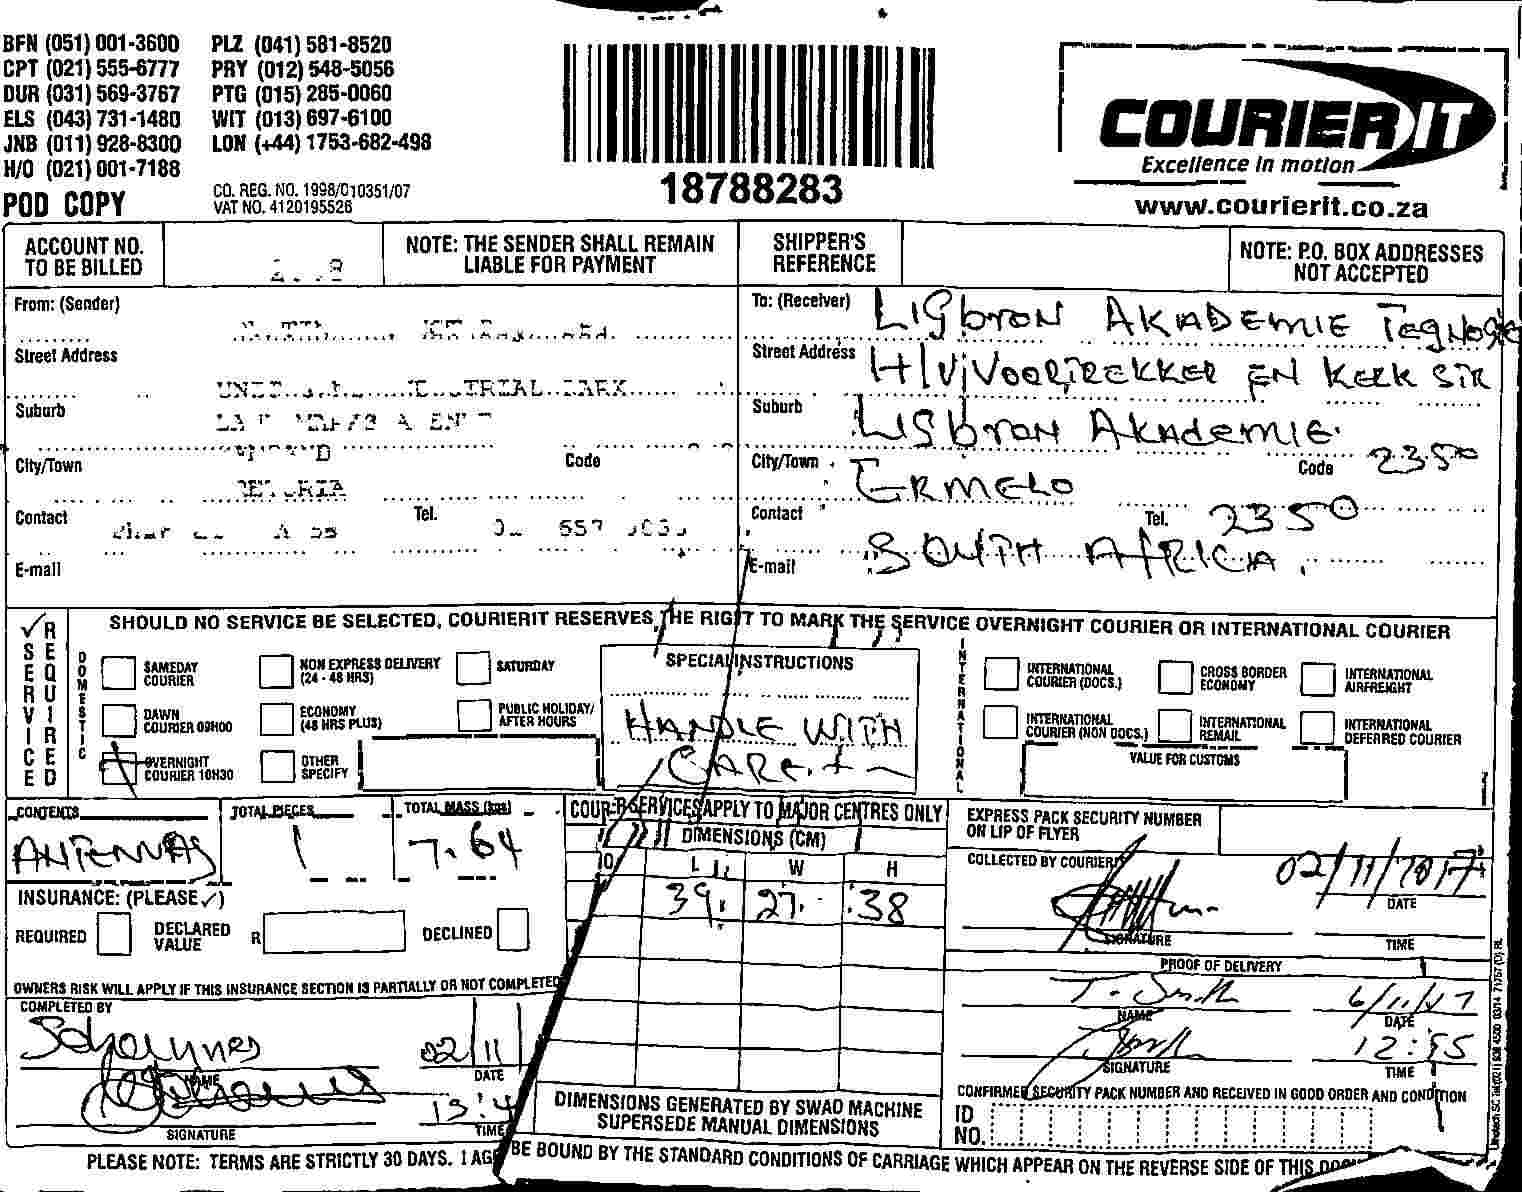 BFN (051) 001-3600 PLZ (041) 581-8520
CPT (021) 555-6777 PRY (012) 548-5056
DUR (031) 569-3767 PTG (015) 285-0060
ELS (043) 731-1480 WIT (013) 697-6100
JNB (011) 928-8300 LON (+44) 1753-682-498
H/O (021) 001-7188
POD COPY
CO. REG. NO. 1998/010351/07
VAT NO. 4120195526
18788283
COURIER IT
Excellence in motion
www.courierit.co.za
ACCOUNT NO. TO BE BILLED
NOTE: THE SENDER SHALL REMAIN LIABLE FOR PAYMENT
SHIPPER'S REFERENCE
NOTE: P.O. BOX ADDRESSES NOT ACCEPTED
From: (Sender)
Street Address
Suburb
City/Town Code
Contact Tel. 657
E-mail
To: (Receiver) LIGbRON AKADEMIE
Street Address H/V VOORTREKKER EN KERK STR
Suburb LIGbRON AKAdEMIE
City/Town ERMELO Code 2350
Contact Tel. 2350
E-mail SOUTH AFRICA.
SHOULD NO SERVICE BE SELECTED, COURIERIT RESERVES THE RIGHT TO MARK THE SERVICE OVERNIGHT COURIER OR INTERNATIONAL COURIER
✓ SERVICE REQUIRED
DOMESTIC
SAMEDAY COURIER
NON EXPRESS DELIVERY (24 - 48 HRS)
SATURDAY
DAWN COURIER 09H00
ECONOMY (48 HRS PLUS)
PUBLIC HOLIDAY/ AFTER HOURS
OVERNIGHT COURIER 10H30
OTHER SPECIFY
SPECIAL INSTRUCTIONS
HANDLE WITH
CARE
INTERNATIONAL
INTERNATIONAL COURIER (DOCS.)
CROSS BORDER ECONOMY
INTERNATIONAL AIRFREIGHT
INTERNATIONAL COURIER (NON DOCS.)
INTERNATIONAL REMAIL
INTERNATIONAL DEFERRED COURIER
VALUE FOR CUSTOMS
CONTENTS TOTAL PIECES TOTAL MASS (kgs)
ANTENNAS 1 7.64
INSURANCE: (PLEASE ✓)
REQUIRED DECLARED VALUE R DECLINED
OWNERS RISK WILL APPLY IF THIS INSURANCE SECTION IS PARTIALLY OR NOT COMPLETED
COMPLETED BY
02/11
NAME DATE
SIGNATURE TIME
COURIER SERVICES APPLY TO MAJOR CENTRES ONLY
DIMENSIONS (CM)
L W H
39 27 38
DIMENSIONS GENERATED BY SWAD MACHINE
SUPERSEDE MANUAL DIMENSIONS
EXPRESS PACK SECURITY NUMBER ON LIP OF FLYER
COLLECTED BY COURIER
02/11/2017
DATE
SIGNATURE TIME
PROOF OF DELIVERY
T. Smith 6/11/17
NAME DATE
T. Smith 12:55
SIGNATURE TIME
CONFIRMED SECURITY PACK NUMBER AND RECEIVED IN GOOD ORDER AND CONDITION
ID NO.
PLEASE NOTE: TERMS ARE STRICTLY 30 DAYS. BE BOUND BY THE STANDARD CONDITIONS OF CARRIAGE WHICH APPEAR ON THE REVERSE SIDE OF THIS